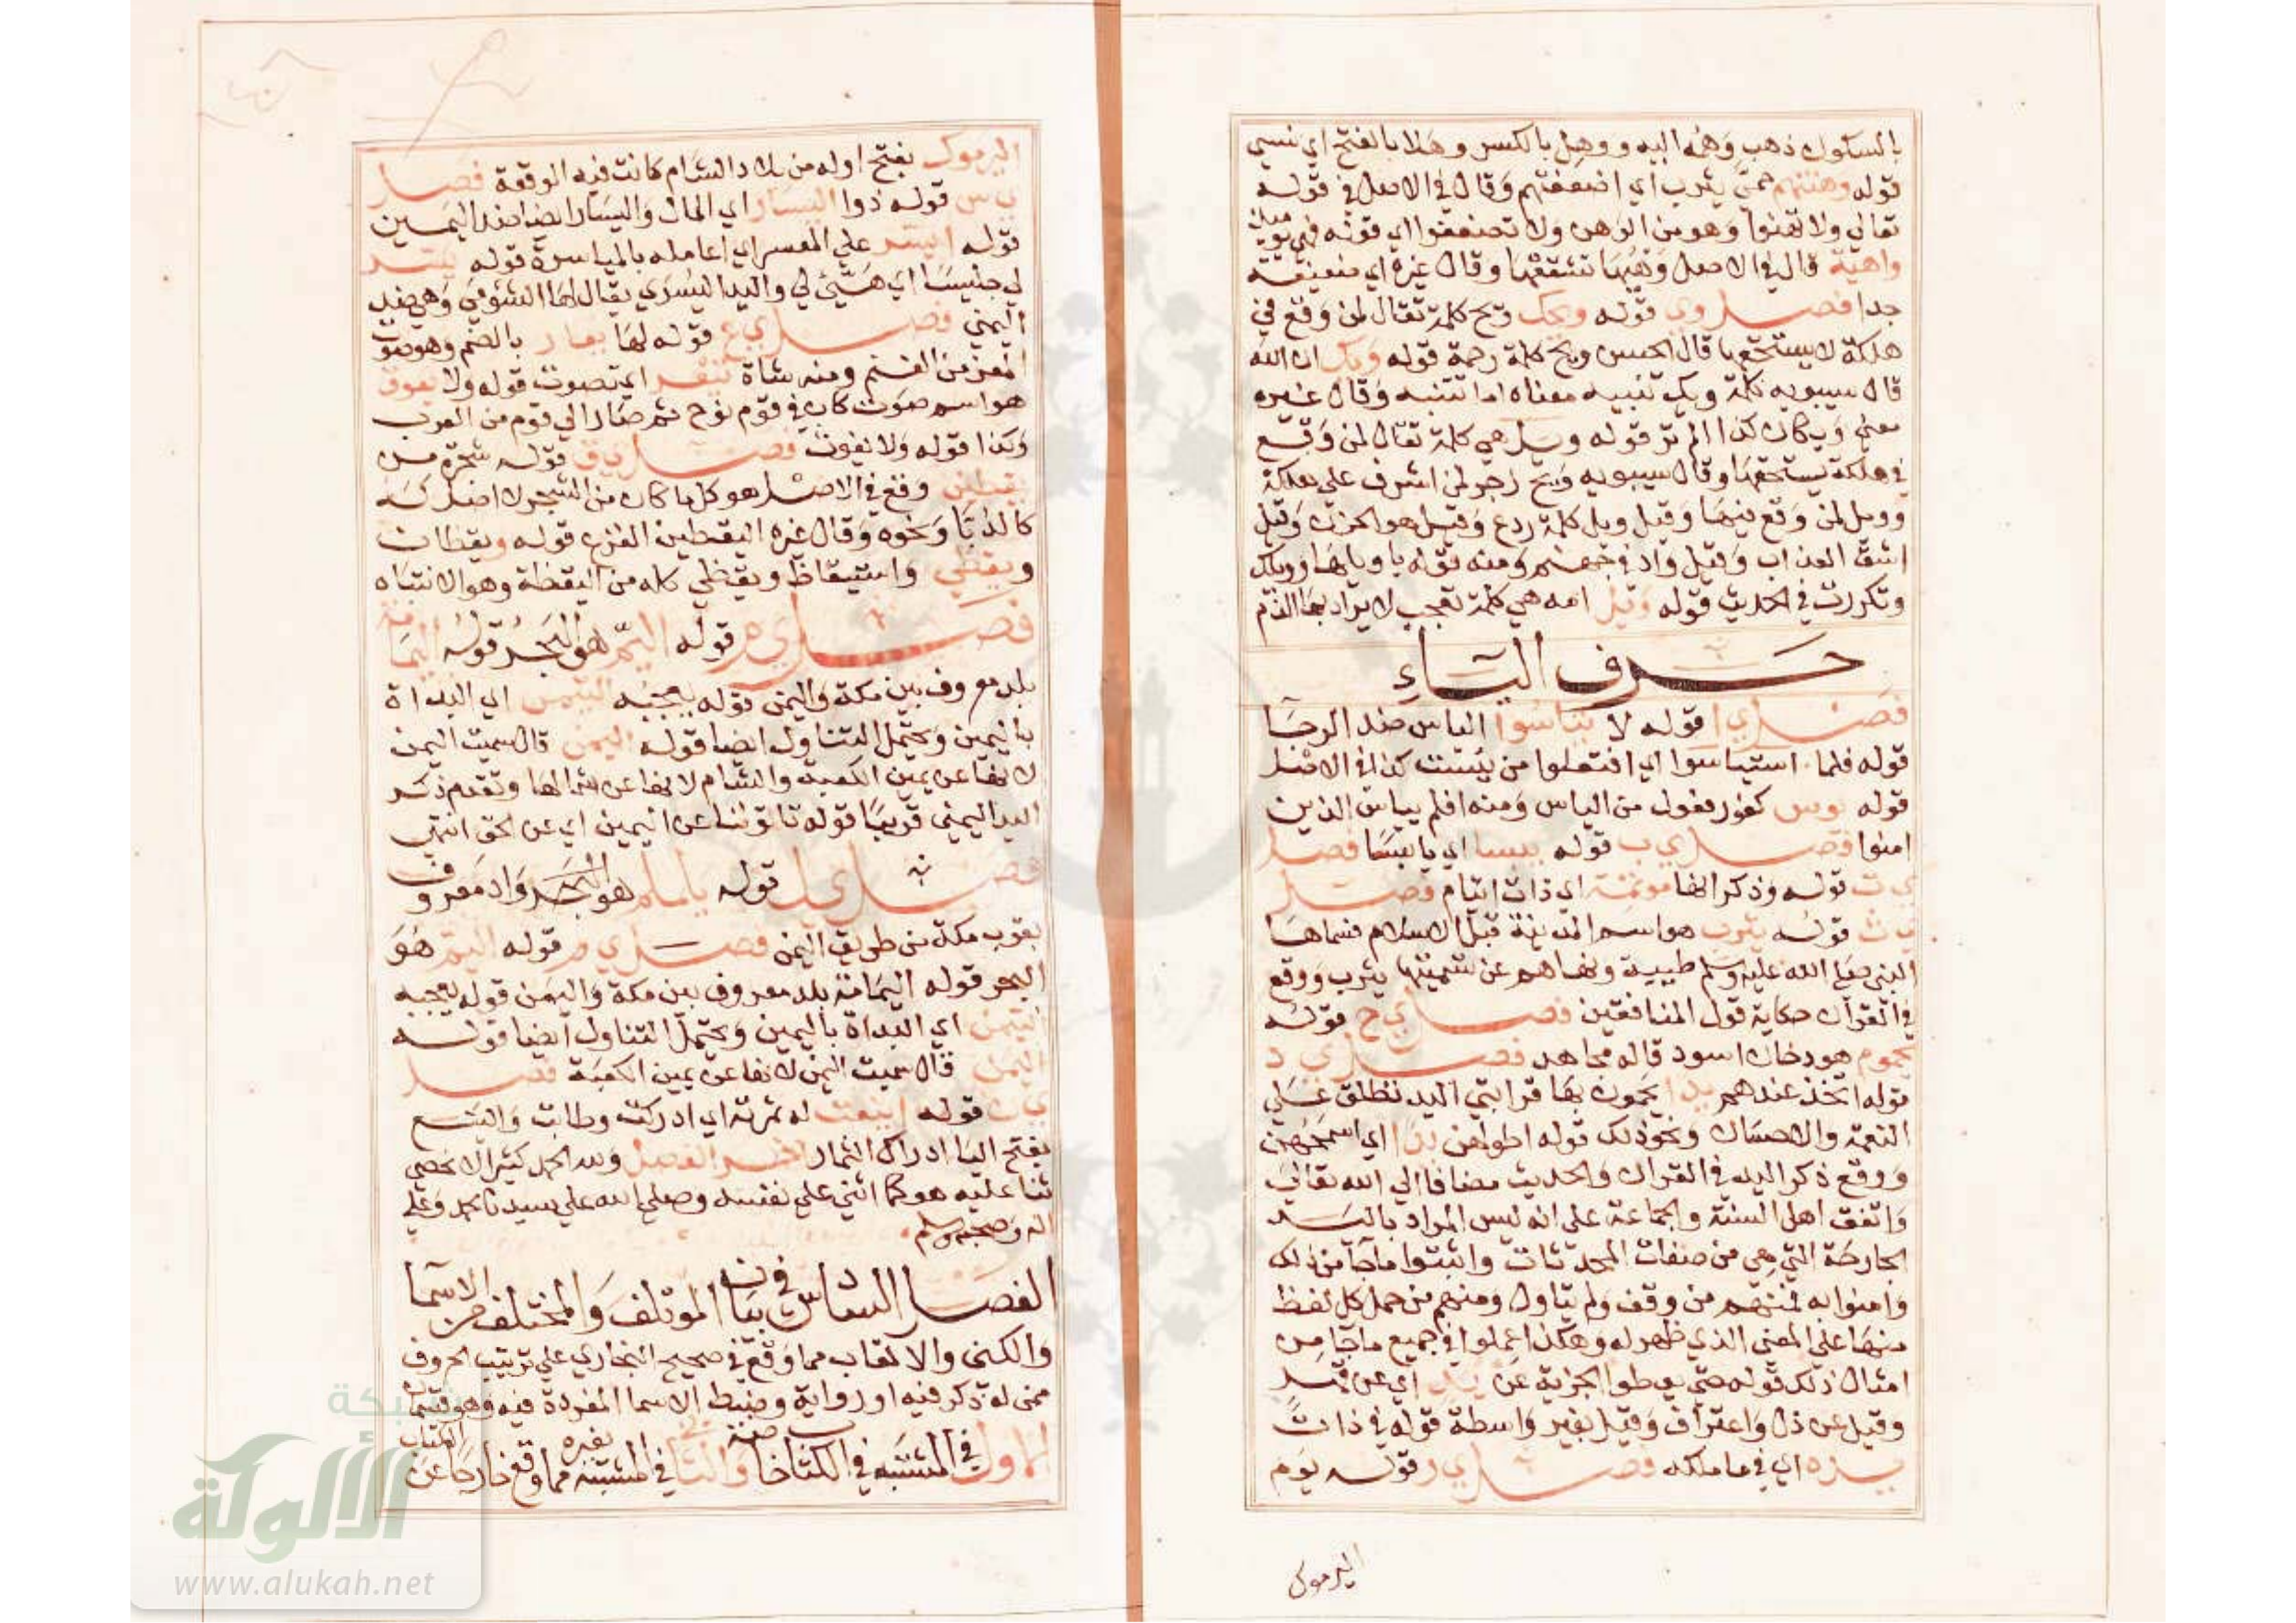 بالسكون ذهب وهمه اليه ووهل بالكسر وهلا بالفتح اي نسي
قوله وهنتهم حمى يثرب اي اضعفتهم وقال في الاصل في قوله
تعالى ولا تهنوا وهو من الوهن ولا تضعفوا اي قوله فهي يوميذ
واهية قال في الاصل وهيها تشققها وقال غيره اي ضعيفة
جدا فصل وي قوله ويحك ويح كلمة تقال لمن وقع في
هلكة لا يستحقها قال الحسن ويح كلمة رحمة قوله ويك ان الله
قال سيبويه كلمة ويك تنبيه معناه اما تنتبه وقال غيره
معنى ويكان كذا الم تر قوله ويل هي كلمة تقال لمن وقع
في هلكة يستحقها وقال سيبويه ويح زجر لمن اشرف على هلكة
وويل لمن وقع فيها وقيل ويل كلمة ردع وقيل هو الحزن وقيل
اشق العذاب وقيل واد في جهنم ومنه قوله يا ويلها وويلك
وتكررت في الحديث قوله ويل امه هي كلمة تعجب لا يراد بها الذم
حرف الياء
فصل ي ا قوله لا يياسوا الياس ضد الرجا
قوله فلما استياسوا اي افتعلوا من يئست كذا في الاصل
قوله يوس كفور فعول من الياس ومنه افلم يياس الذين
امنوا فصل ي ب قوله يبسا اي يابسا فصل
ي ت قوله وذكر انها موتمة اي ذات ايتام فصل
ي ث قوله يثرب هو اسم المدينة قبل الاسلام فسماها
النبي صلى الله عليه وسلم طيبة ونهاهم عن تسميتها يثرب ووقع
في القرآن حكاية قول المنافقين فصل ي ح قوله
يحموم هو دخان اسود قاله مجاهد فصل ي د
قوله اتخذ عندهم يدا يحمون بها قرابتي اليد تطلق على
النعمة والاحسان ونحو ذلك قوله اطولهن يدا اي اسمحهن
ووقع ذكر اليد في القران والحديث مضافا الى الله تعالى
واتفق اهل السنة والجماعة على انه ليس المراد باليد
الجارحة التي هي من صفات المحدثات واثبتوا ماجآ من ذلك
وامنوا به فمنهم من وقف ولم يتاول ومنهم من حمل كل لفظ
منها على المعنى الذي ظهر له وهكذا عملوا في جميع ماجآ من
امثال ذلك قوله حتى يعطوا الجزية عن يد اي عن قهر
وقيل عن ذل واعتراف وقيل بغير واسطة قوله في ذات
يده اي في ما ملكه فصل ي ر قوله يوم
اليرموك
اليرموك بفتح اوله من بلاد الشام كانت فيه الوقعة فصل
ي س قوله ذوا اليسار اي المال واليسار ايضا ضد اليمين
قوله ايسر على المعسر اي اعامله بالمياسرة قوله يسر
لي جليسا اي هيئ لي واليد اليسرى يقال لها الشومى وهي ضد
اليمنى فصل ي ع قوله لها يعار بالضم وهو صوت
المعز من الغنم ومنه شاة تيعر اي تصوت قوله ولا يعوق
هو اسم كان في قوم نوح ثم صار الى قوم من العرب
وكذا قوله ولا يغوث فصل ي ق قوله شجرة من
يقطين وقع في الاصل هو كل ما كان من الشجر لا اصل له
كالدبا ونحوه وقال غيره اليقطين القرع قوله ويقظان
ويقظي واستيقاظ ويقظي كله من اليقظة وهو الانتباه
فصل ي م قوله اليم هو البحر قوله اليمامة
بلد معروف بين مكة واليمن قوله يعجبه التيمن اي البداة
باليمين ويحتمل التناول ايضا قوله اليمن قال سميت اليمن
لانها عن يمين الكعبة والشام لانها عن شمالها وتقدم ذكر
اليد اليمنى قريبا قوله تاتوننا عن اليمين اي عن الحق انتهى
فصل ي ل قوله يلملم هو واد معروف
بقرب مكة من طريق اليمن فصل ي م قوله اليم هو
البحر قوله اليمامة بلد معروف بين مكة واليمن قوله يعجبه
التيمن اي البداة باليمين ويحتمل التناول ايضا قوله
اليمن قال سميت اليمن لانها عن يمين الكعبة فصل
ي ن قوله اينعت له ثمرته اي ادركت وطابت والينع
بفتح اليا ادراك الثمار اخر الفصل ولله الحمد كثيرا لا نحصي
ثنا عليه هو كما اثنى على نفسه وصلى الله على سيدنا محمد وعلى
اله وصحبه وسلم
الفصل السادس في بيان الموتلف والمختلف من الاسما
والكنى والالقاب مما وقع في صحيح البخاري على ترتيب الحروف
ممن له ذكر فيه او رواية وضبط الاسما المفردة فيه وهو قسمان
الاول في المشتبه في الكتاب خاصة والثاني في المشتبه بغيره مما وقع خارجا عن الكتاب
شبكة
الألوكة
www.alukah.net